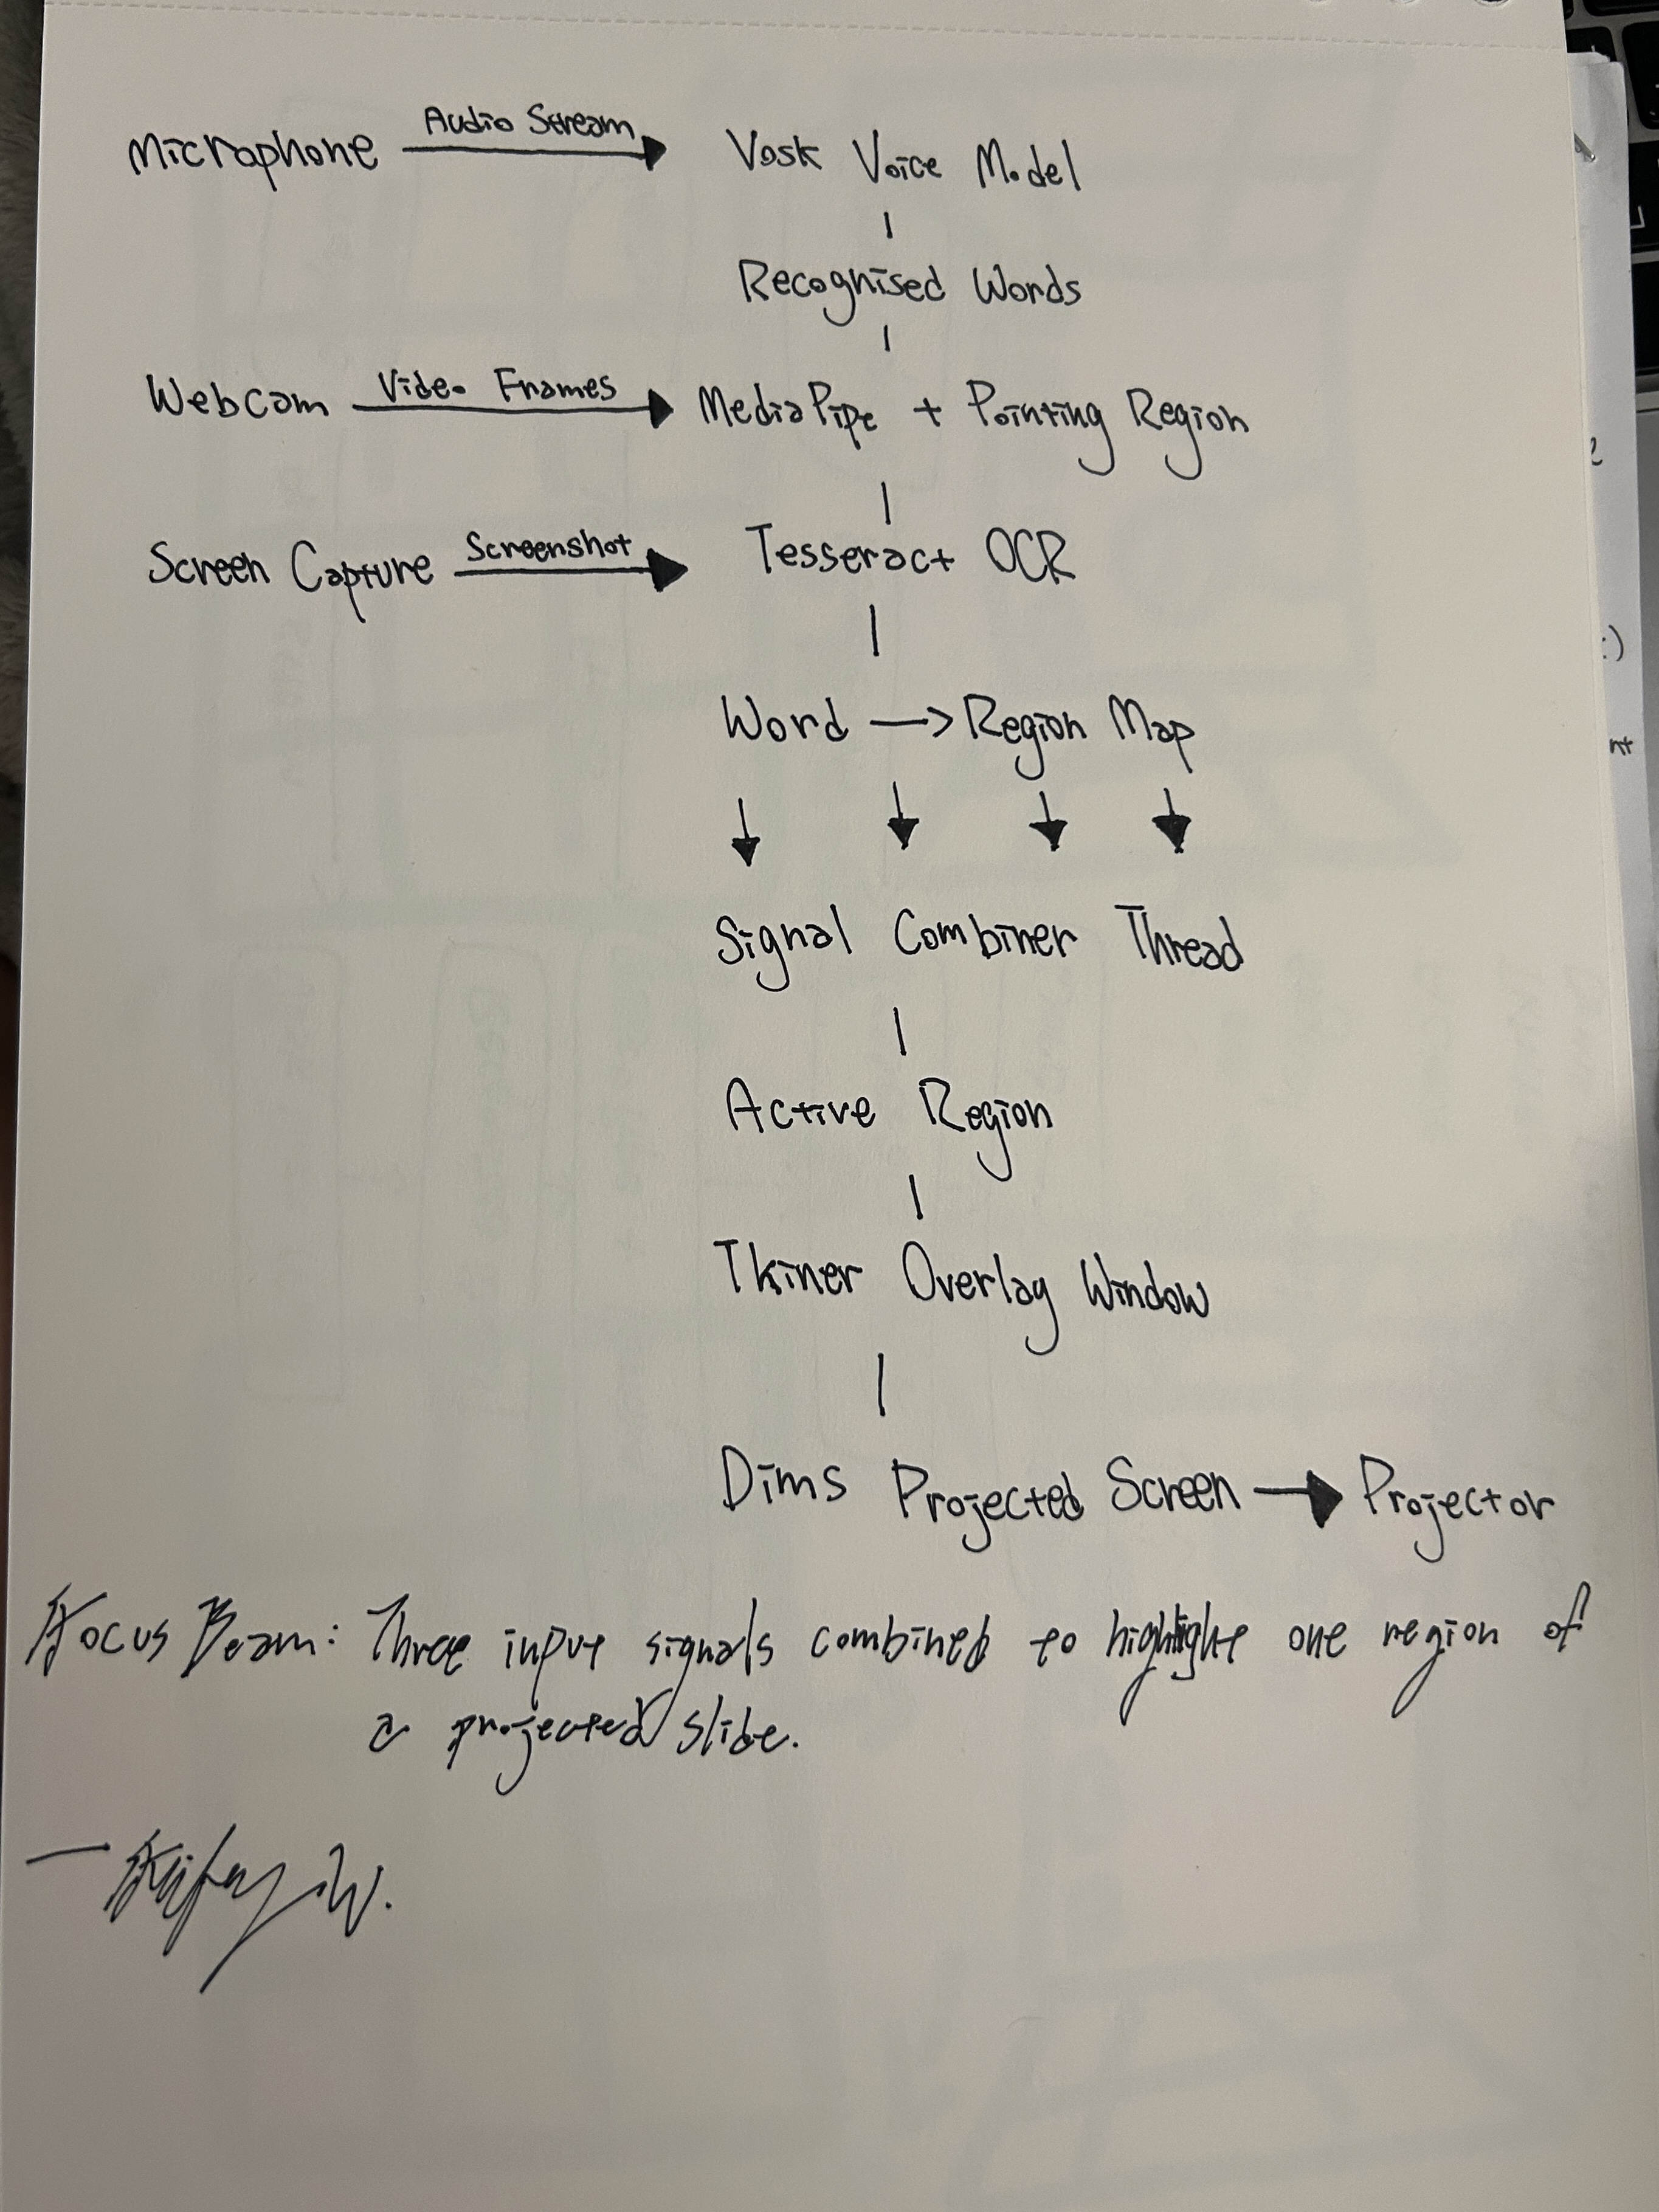 Microphone Audio Stream Vosk Voice Model
Recognised Words
Webcam Video Frames MediaPipe + Pointing Region
Screen Capture Screenshot Tesseract OCR
Word → Region Map
Signal Combiner Thread
Active Region
Tkiner Overlay Window
Dims Projected Screen → Projector
Focus Beam: Three input signals combined to highlight one region of
a projected slide.
W.
:)
nt